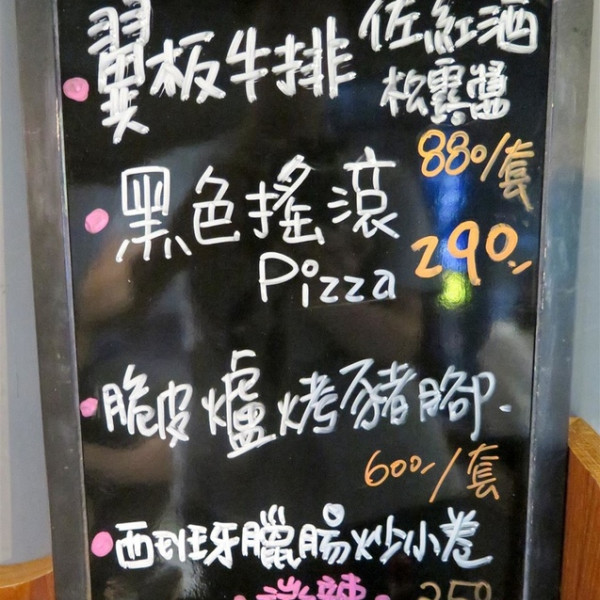 翼板牛排 佐紅酒
松露醬
880/套
黑色搖滾
Pizza 290.-
脆皮爐烤豬腳.
600.-/套
西班牙臘腸炒小卷
微辣 250